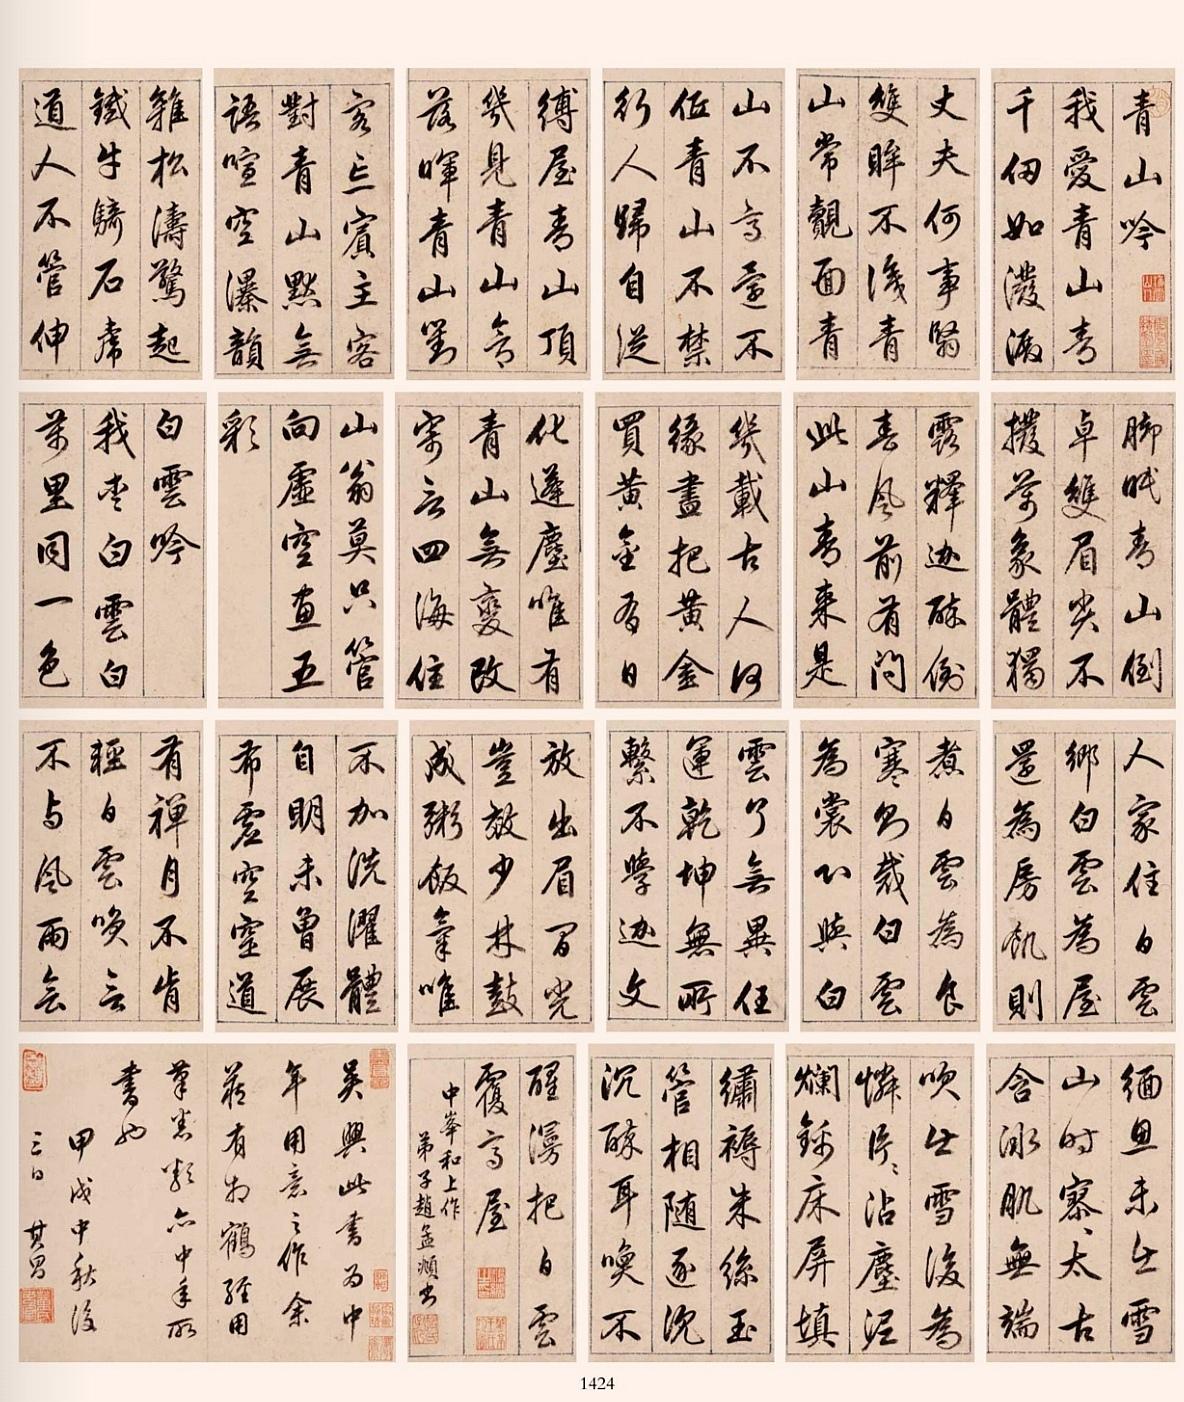 青山吟
我愛青山青
千仞如潑潑
丈夫何事翳
雙眸不淺青
山常覿面青
山不高還不
低青山不禁
行人歸自從
縛屋青山頂
幾見青山含
落暉青山對
客忘賓主客
對青山默無
語喧空瀑韻
雜松濤驚起
鐵牛騎石虎
道人不管伸
脚眠青山倒
卓雙眉尖不
撥萬象體獨
露釋迦醉倒
春風前有問
此山青來是
幾載古人何
緣盡把黃金
買黃金有日
化遂塵唯有
青山無變改
寄言四海住
山翁莫只管
向虛空畫五
彩
白雲吟
我愛白雲白
萬里同一色
人家住白雲
鄉白雲為屋
還為房飢則
煮白雲為食
寒即裁白雲
為裳心與白
雲了無異任
運乾坤無所
繫不學迦文
放出眉間光
豈效少林鼓
成粥飯氣唯
不加洗濯體
自明未曾展
布虛空塞道
有禪月不肯
輕白雲喚言
不与風雨會
緬思未生雪
山时寥、太古
含冰肌無端
吹生雪後為
憐片、沾塵泥
斕錦床屏填
繡褥朱絲玉
管相随逐沉
沉醉耳喚不
醒漫把白雲
覆高屋
中峯和上作
弟子趙孟頫書
吳興此書為中
年用意之作余
藏有相鶴經用
筆悉類亦中年所
書也
甲戌中秋後
三日 其昌
1424